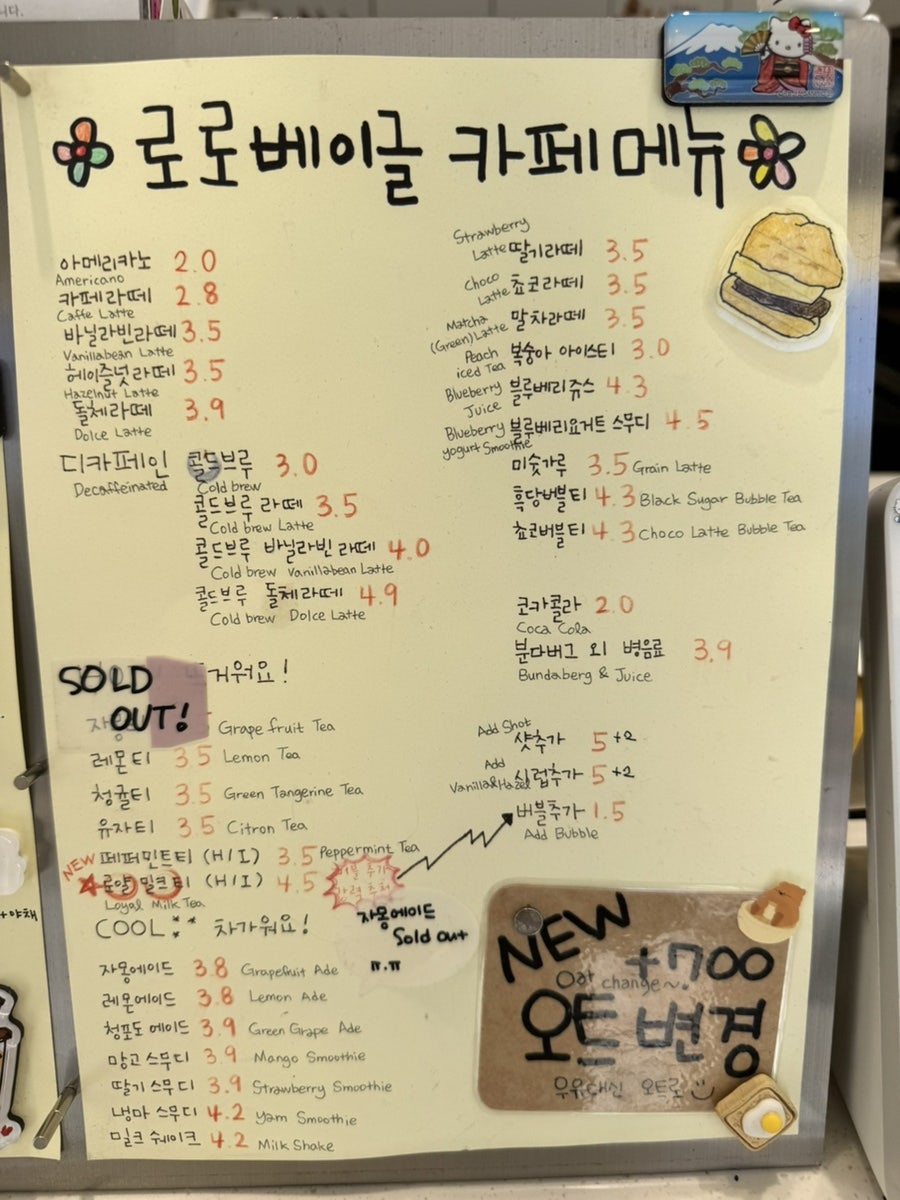 니다.
로로베이글 카페메뉴
아메리카노 2.0
Americano
카페라떼 2.8
Caffe Latte
바닐라빈라떼 3.5
Vanillabean Latte
헤이즐넛라떼 3.5
Hazelnut Latte
돌체라떼 3.9
Dolce Latte
디카페인 콜드브루 3.0
Decaffeinated Cold brew
콜드브루 라떼 3.5
Cold brew Latte
콜드브루 바닐라빈 라떼 4.0
Cold brew Vanillabean Latte
콜드브루 돌체라떼 4.9
Cold brew Dolce Latte
SOLD
OUT!
거워요!
Grape fruit Tea
레몬티 3.5 Lemon Tea
청귤티 3.5 Green Tangerine Tea
유자티 3.5 Citron Tea
NEW
페퍼민트티 (H/I) 3.5 Peppermint Tea
로얄 밀크티 (H/I) 4.5
Loyal Milk Tea
버블 추가
강력 추천
COOL 차가워요!
자몽에이드
Sold out
ㅠ.ㅠ
자몽에이드 3.8 Grapefruit Ade
레몬에이드 3.8 Lemon Ade
청포도 에이드 3.9 Green Grape Ade
망고 스무디 3.9 Mango Smoothie
딸기 스무디 3.9 Strawberry Smoothie
냉마 스무디 4.2 Yam Smoothie
밀크 쉐이크 4.2 Milk Shake
Strawberry
Latte 딸기라떼 3.5
Choco
Latte 쵸코라떼 3.5
Matcha
(Green) Latte 말차라떼 3.5
Peach
iced Tea 복숭아 아이스티 3.0
Blueberry
Juice 블루베리쥬스 4.3
Blueberry
yogurt Smoothie 블루베리요거트 스무디 4.5
미숫가루 3.5 Grain Latte
흑당버블티 4.3 Black Sugar Bubble Tea
쵸코버블티 4.3 Choco Latte Bubble Tea
코카콜라 2.0
Coca Cola
분다버그 외 병음료 3.9
Bundaberg & Juice
Add Shot
샷추가 5
Add
Vanilla&Hazel 시럽추가 5
버블추가 1.5
Add Bubble
NEW +700
Oat change~
오트 변경
우유대신 오트로
+야채